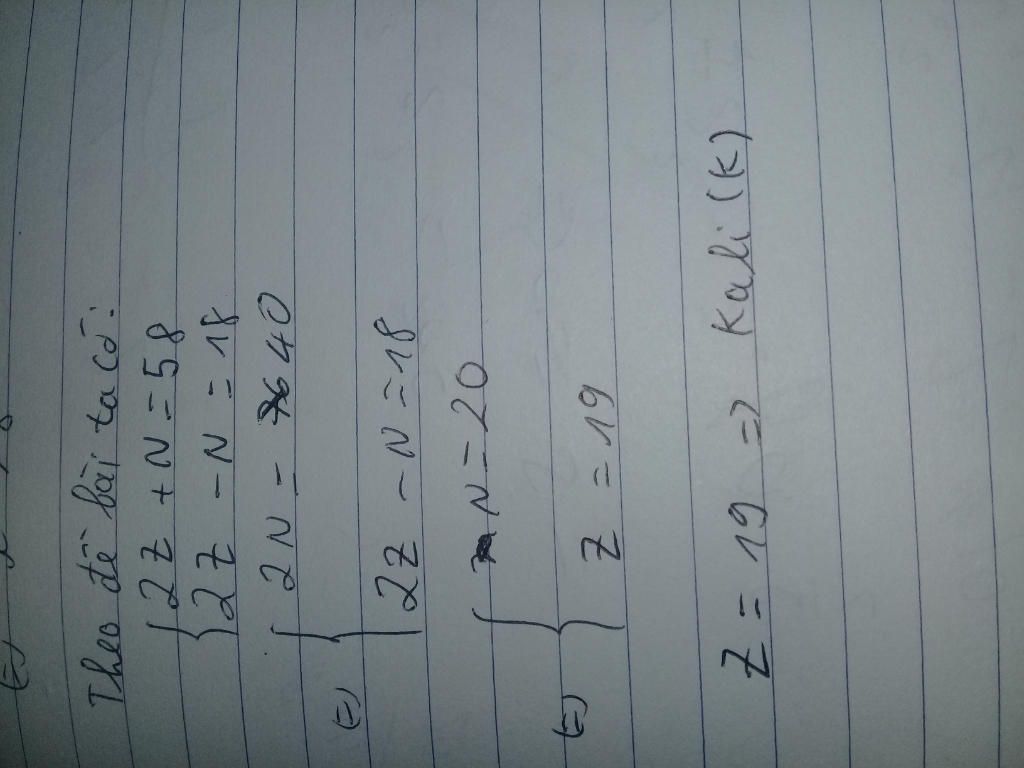 Theo đề bài ta có:
{ 2Z + N = 58
2Z - N = 18
(=) { 2N - 40
2Z - N = 18
(=) { N = 20
Z = 19
Z = 19 => Kali (K)